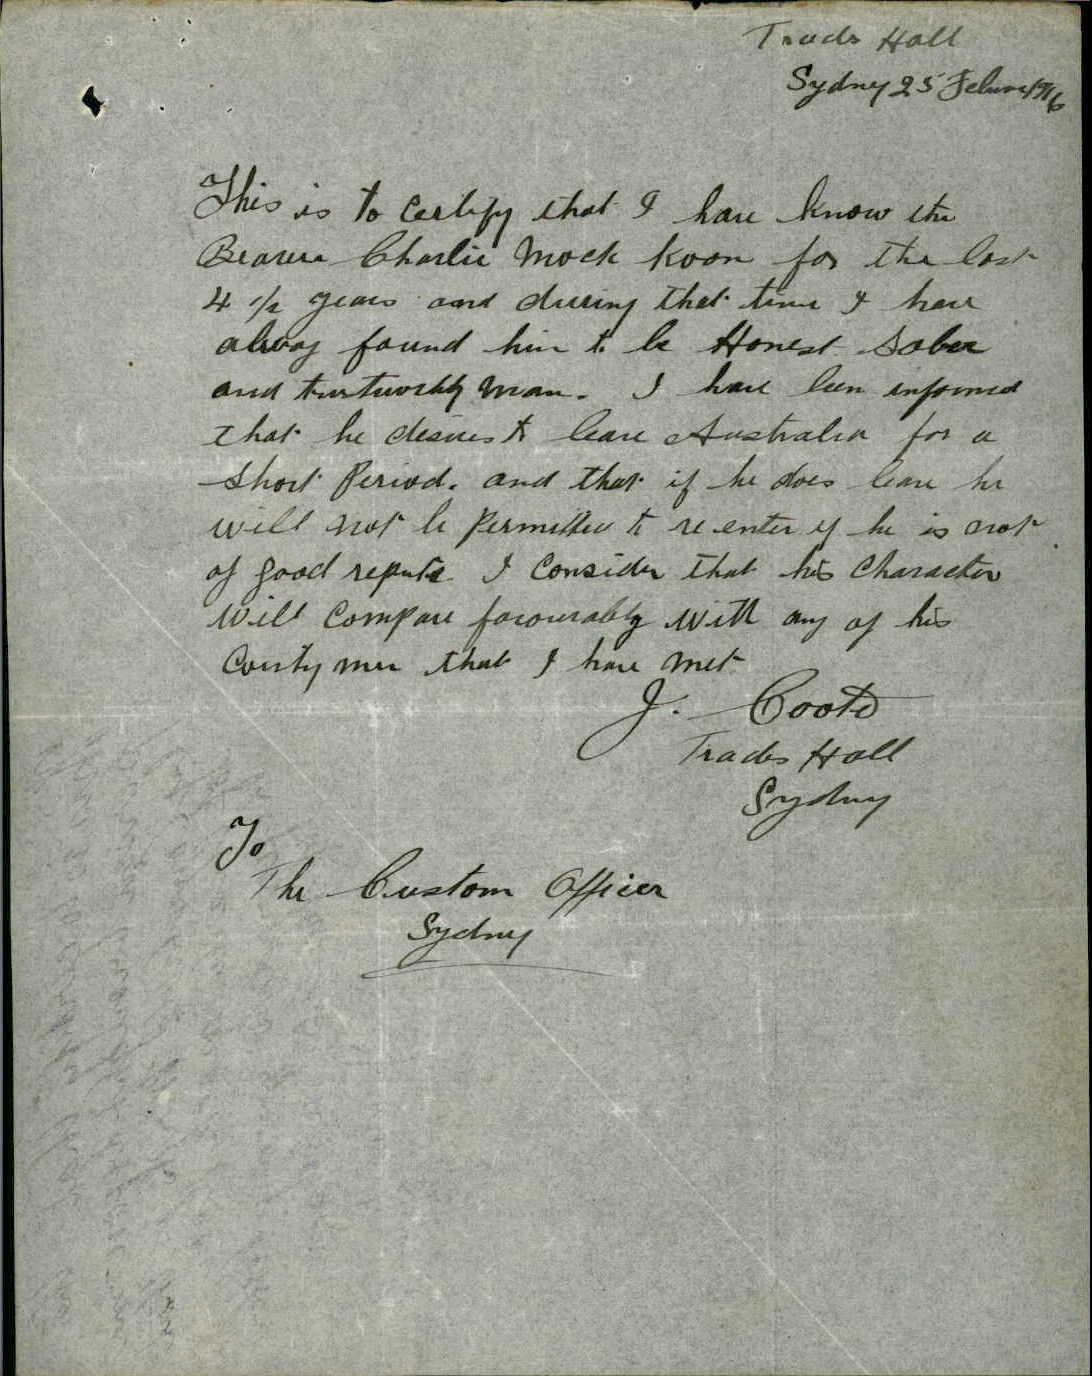 Trades Hall
Sydney 25 Februa 1916
This is to certify that I have know the
Bearer Charlie Mock Koon for the last
4 1/2 years and during that time I have
alway found him to be Honest Sober
and trustworthy man. I have been informed
that he desires to leave Australia for a
Short Period. and that if he does leave he
will not be Permitted to re enter if he is not
of good repute I Consider that his Character
Will Compare favourably With any of his
Countymen that I have Met
J. Coote
Trades Hall
Sydney
To
The Custom Officer
Sydney